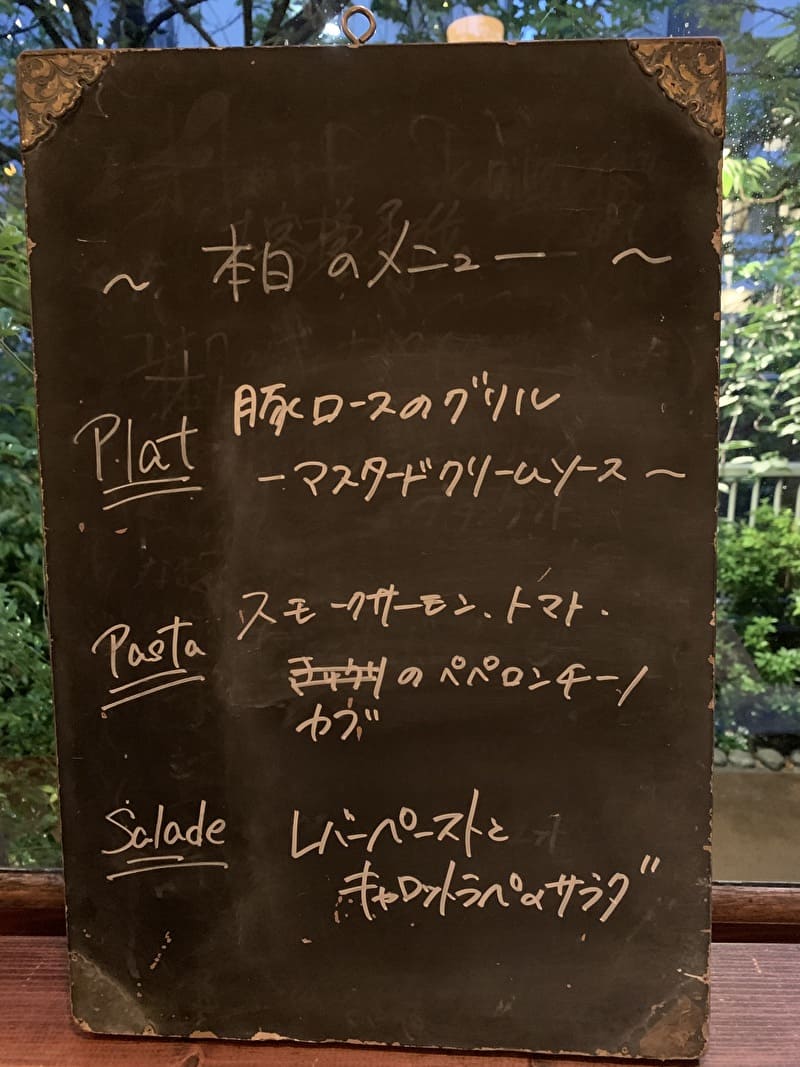 ～ 本日のメニュー ～
Plat 豚ロースのグリル
ーマスタードクリームソース～
Pasta スモークサーモン、トマト、
のペペロンチーノ
カブ
Salade レバーペーストと
キャロットラペのサラダ